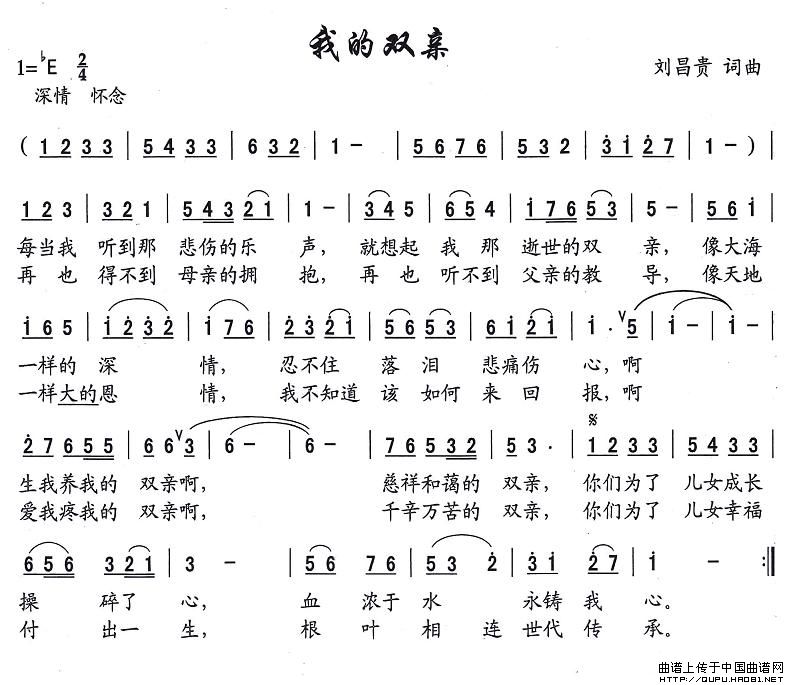 我的双亲
1=♭E 2/4
刘昌贵 词曲
深情 怀念
( 1 2 3 3 | 5 4 3 3 | 6 3 2 | 1 - | 5 6 7 6 | 5 3 2 | 3 1 2 7 | 1 - ) |
1 2 3 | 3 2 1 | 5 4 3 2 1 | 1 - | 3 4 5 | 6 5 4 | 1 7 6 5 3 | 5 - | 5 6 1 |
每当我 听到那 悲伤的乐 声，就想起 我那 逝世的双 亲，像大海
再也 得不到 母亲的拥 抱，再也 听不到 父亲的教 导，像天地
1 6 5 | 1 2 3 2 | 1 7 6 | 2 3 2 1 | 5 6 5 3 | 6 1 2 1 | 1 · ∨ 5 | 1 - | 1 - |
一样的 深 情，忍不住 落泪 悲痛伤 心，啊
一样大的恩 情，我不知道 该 如何 来回 报，啊
2 7 6 5 5 | 6 6 ∨ 3 | 6 - | 6 - | 7 6 5 3 2 | 5 3 · | 𝄋 1 2 3 3 | 5 4 3 3 |
生我养我的 双亲啊， 慈祥和蔼的 双亲，你们为了 儿女成长
爱我疼我的 双亲啊， 千辛万苦的 双亲，你们为了 儿女幸福
6 5 6 | 3 2 1 | 3 - | 5 6 7 6 | 5 3 2 | 3 1 | 2 7 | 1 - :||
操 碎了 心， 血 浓于 水 永铸 我 心。
付 出一 生， 根 叶 相 连 世代 传 承。
曲谱上传于中国曲谱网
HTTP://QUPU.HAO81.NET